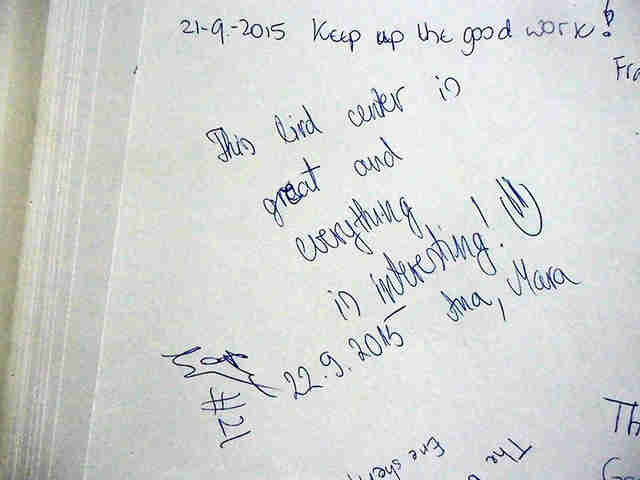 21-9.-2015 Keep up the good work!
Fra
This bird center is
great and
everything
is interesting!
Ana, Mara
22.9.2015
#21
Th
The